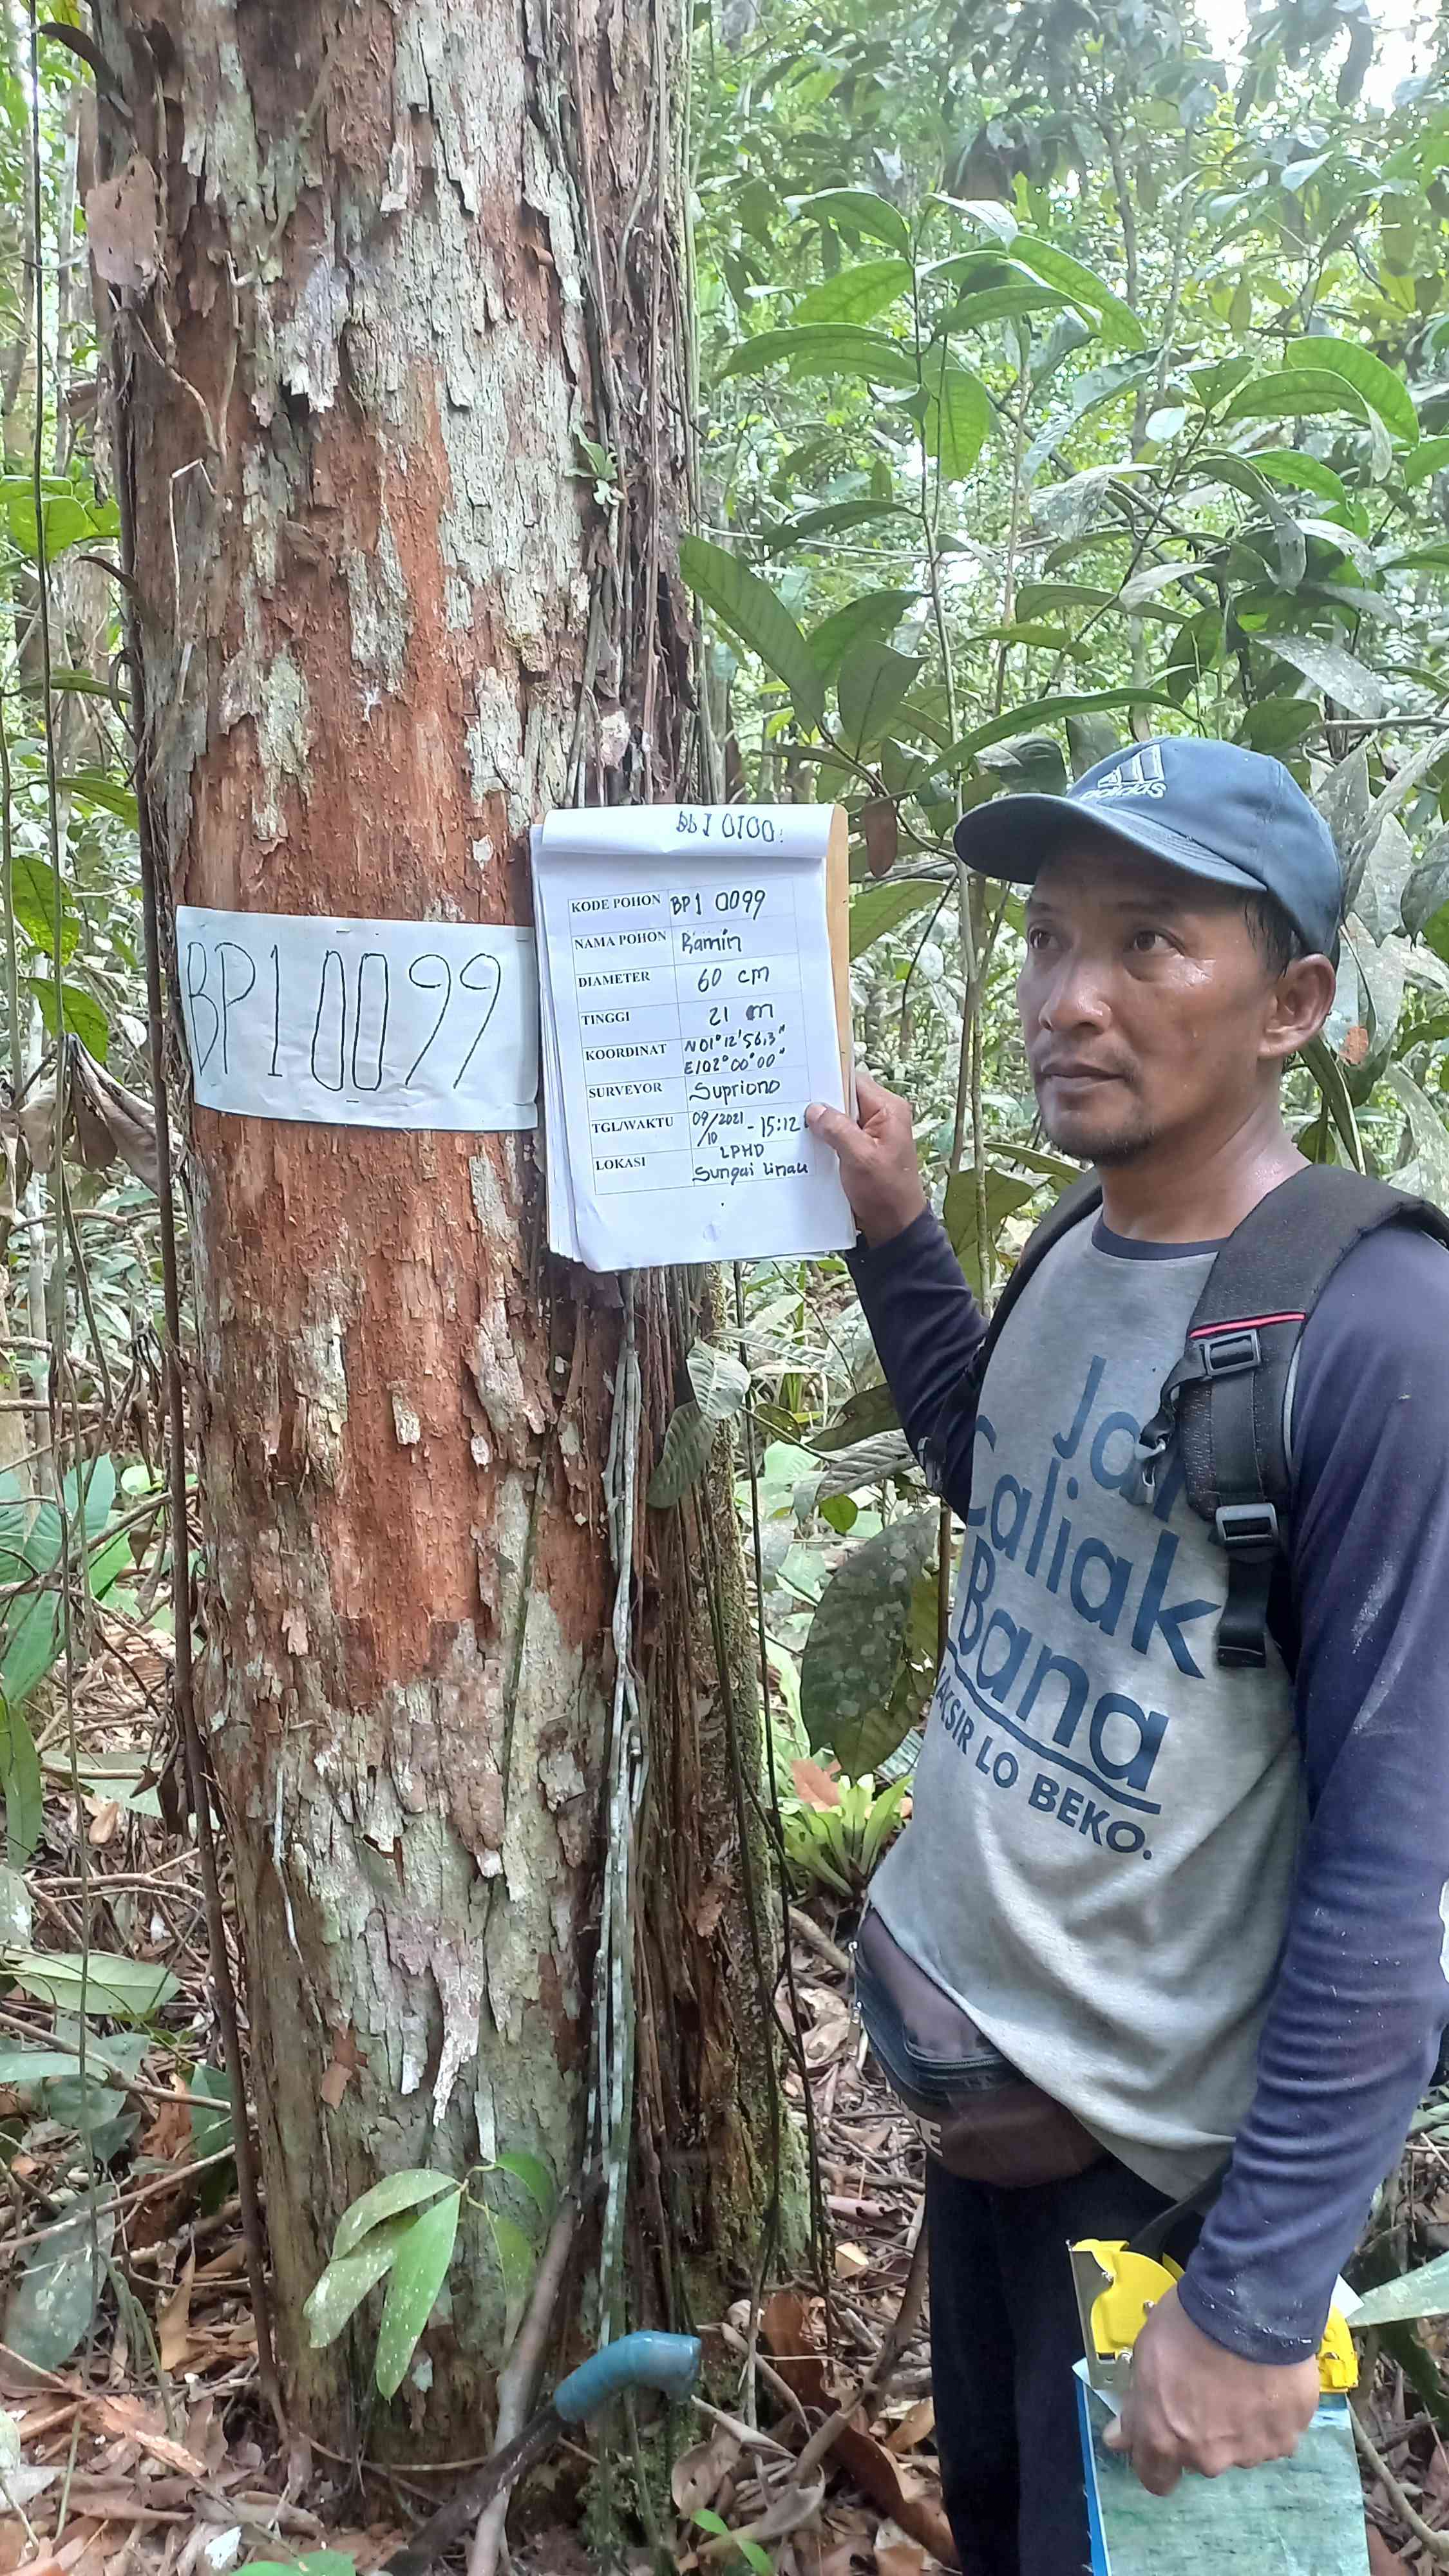 BP1 0100
KODE POHON BP1 0099
NAMA POHON Ramin
DIAMETER 60 cm
TINGGI 21 m
KOORDINAT N 01°12'56,3"
E102°00'00"
SURVEYOR Supriono
TGL/WAKTU 09/10/2021 - 15:12
LOKASI LPHD
Sungai Linau
BP1 0099
adidas
Jan
Caliak
Bana
LO BEKO.